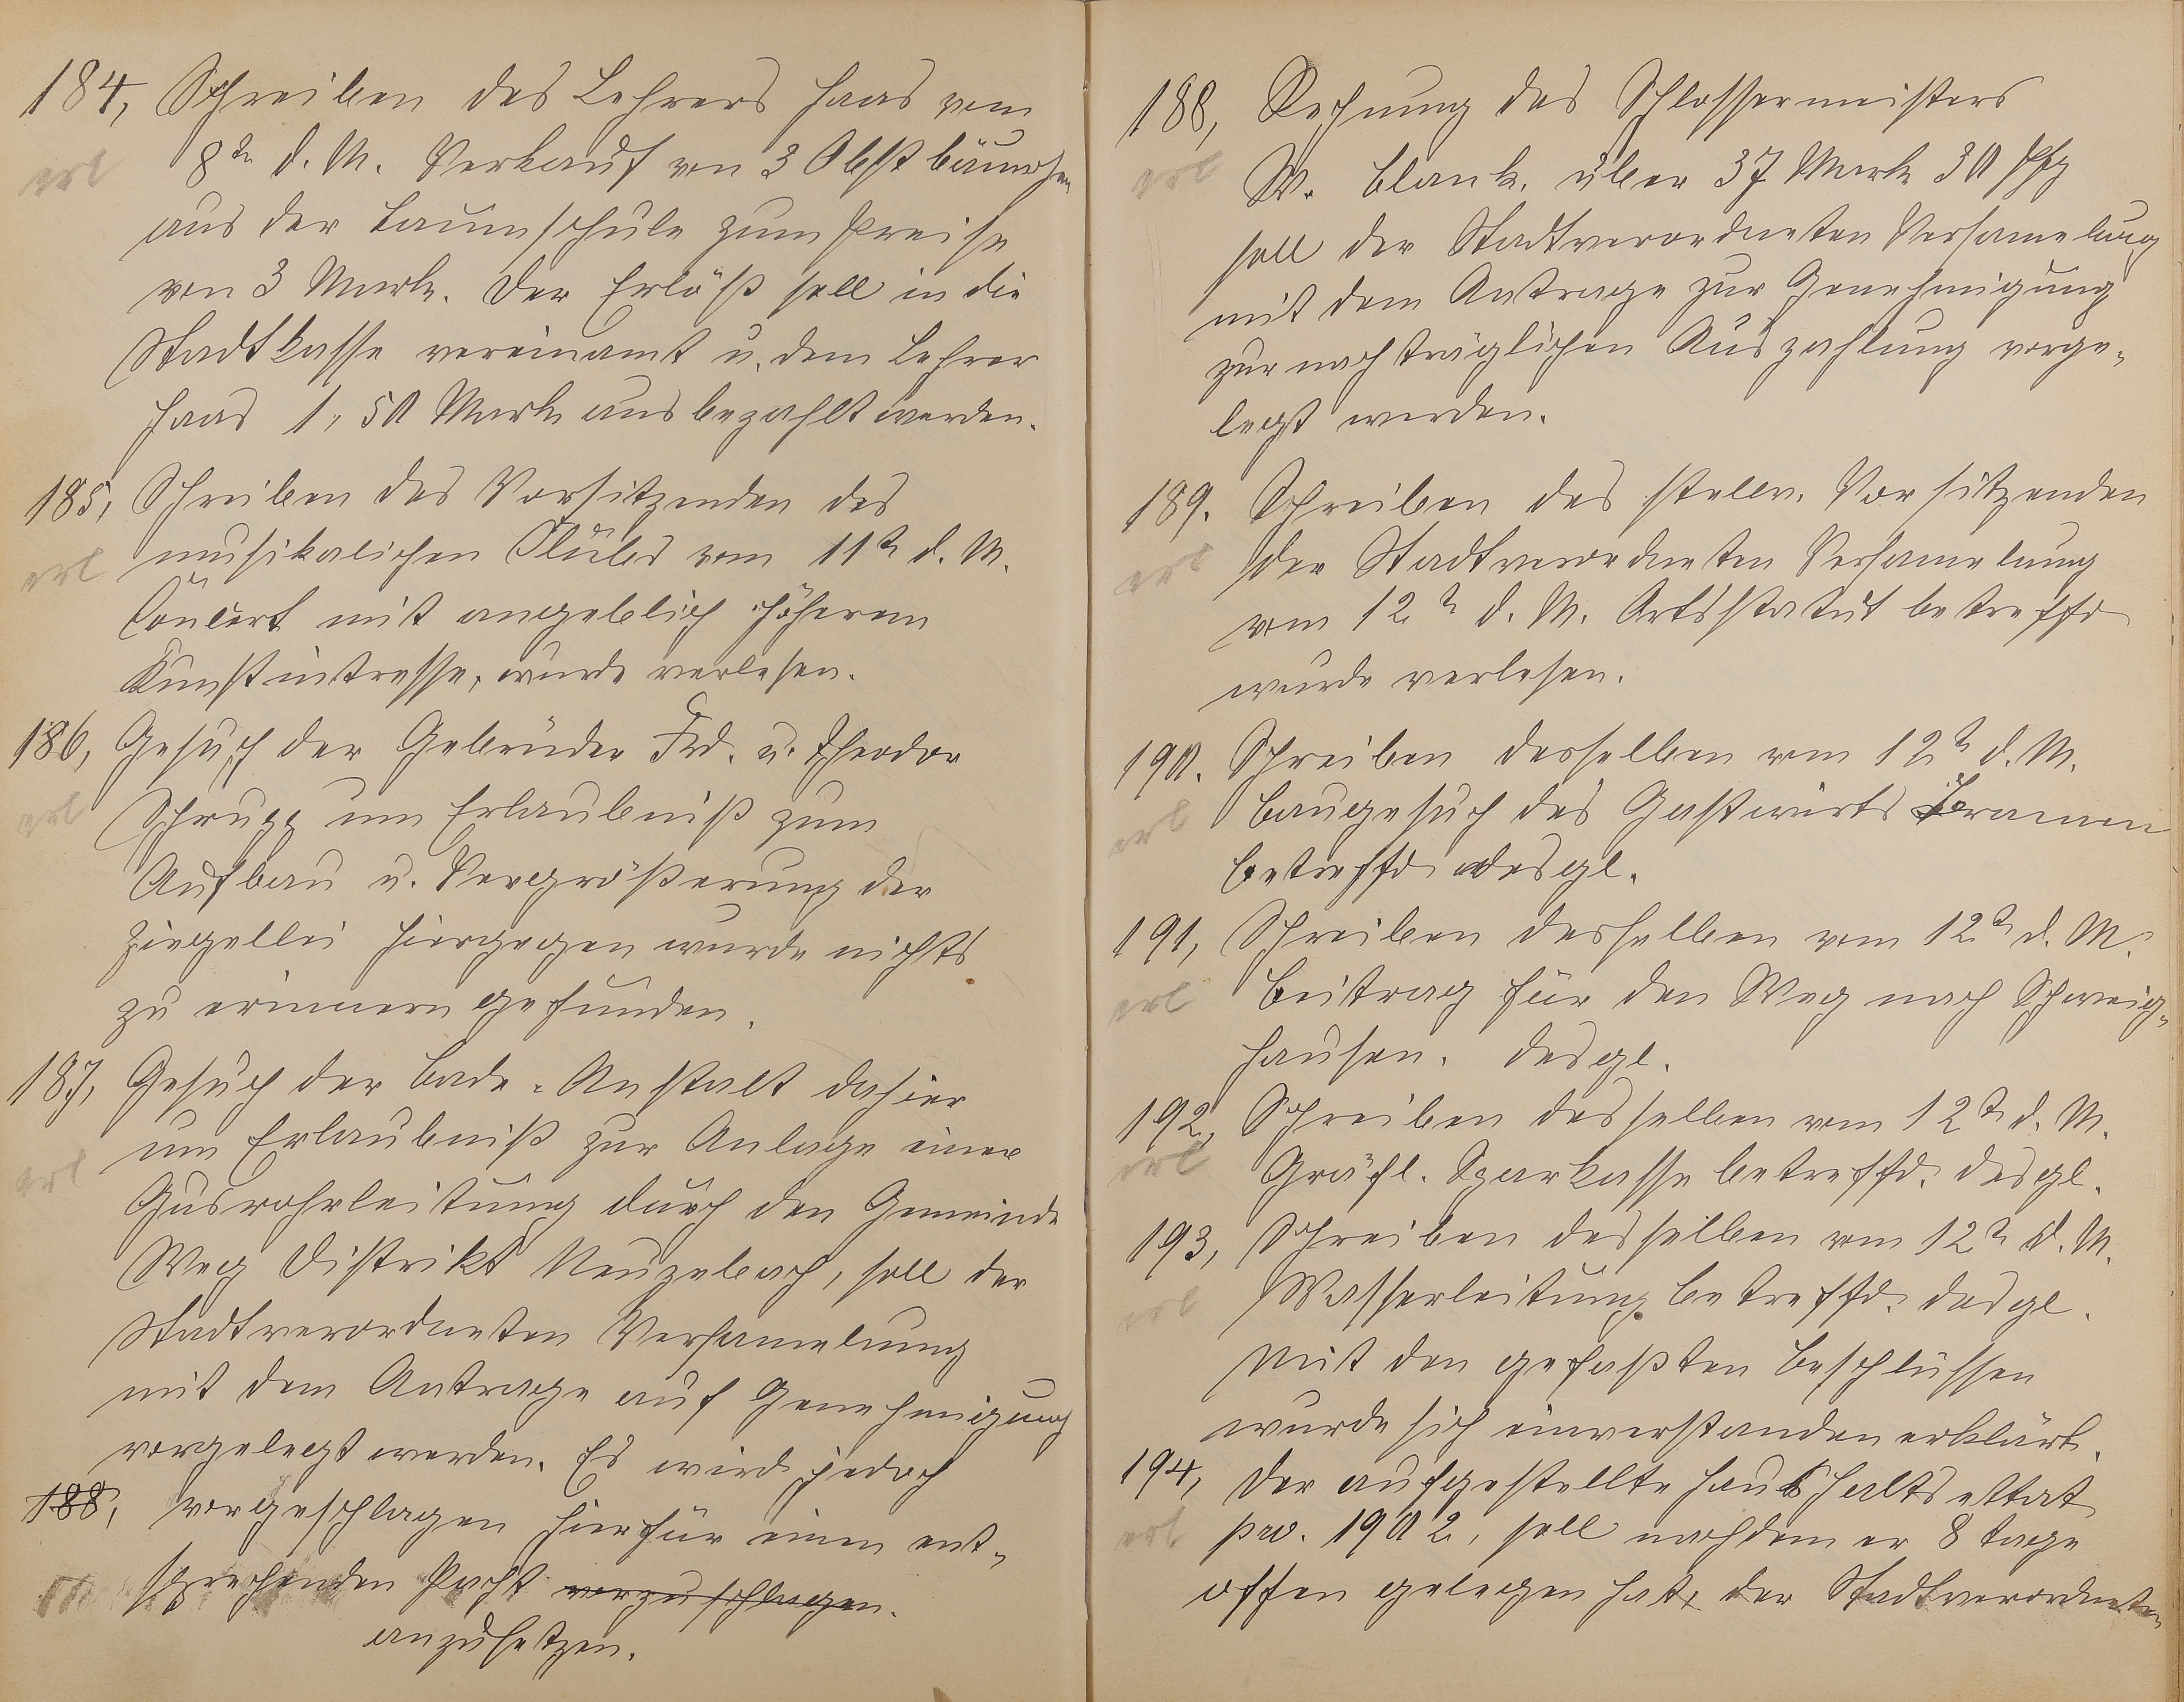 184, Schreiben des Lehrers Haas vom
erl 8tn d. M. Verkauf von 3 Obstbäumchen
aus der Baumschule zum Preise
von 3 Mark. Der Erlöß soll in die
Stadtkasse vereinamt u. dem Lehrer
Haas 1,50 Mark ausbezahlt werden.
185, Schreiben des Vorsitzenden des
erl musikalichen Clubs vom 11tn d. M.
Concert mit angeblich höherem
Kunstintresse, wurde verlesen.
186, Gesuch der Gebrüder Frd. u. Theodor
erl Schrupp um Erlaubniß zum
Aufbau u. Vergrößerung der
Ziegellei hiergegen wurde nichts
zu erinnern gefunden.
187, Gesuch der Bade-Anstalt dahier
erl um Erlaubniß zur Anlage einer
Gasrohrleitung durch den Gemeinde
Weg Distrikt Neuzebach, soll der
Stadtverordneten Versamelung
mit dem Antrage auf Genehmigung
vorgelegt werden. Es wird jedoch
188, vorgeschlagen hierfür einen ent-
sprechenden Pacht vorzuschlagen.
anzusetzen.
188, Rechnung des Schlossermeisters
erl W. Blank. über 37 Mark 30 Pfg
soll der Stadtverordneten Versamelung
mit dem Antrage zur Genehmigung
zur nachträglichen Auszahlung vorge-
legt werden.
189. Schreiben des stellv. Vorsitzenden
erl der Stadtverordneten Versamelung
vom 12tn d. M. Ortsstatut betreffd
wurde verlesen.
190. Schreiben desselben vom 12tn d. M.
erl Baugesuch des Gastwirts
betreffd desgl.
191, Schreiben desselben vom 12tn d. M.
erl Beitrag für den Weg nach Schweig-
hausen. desgl.
192, Schreiben desselben vom 12tn d. M.
erl Gräfl. Sparkasse betreffd. desgl.
193, Schreiben desselben vom 12tn d. M.
erl Wasserleitung betreffd. desgl.
Mit den gefaßten Beschlüssen
wurde sich einverstanden erklärt.
194, Der aufgestellte Haushaltsettat
erl pro. 1902, soll nachdem er 8 Tage
offen gelegen hat, der Stadtverordneten